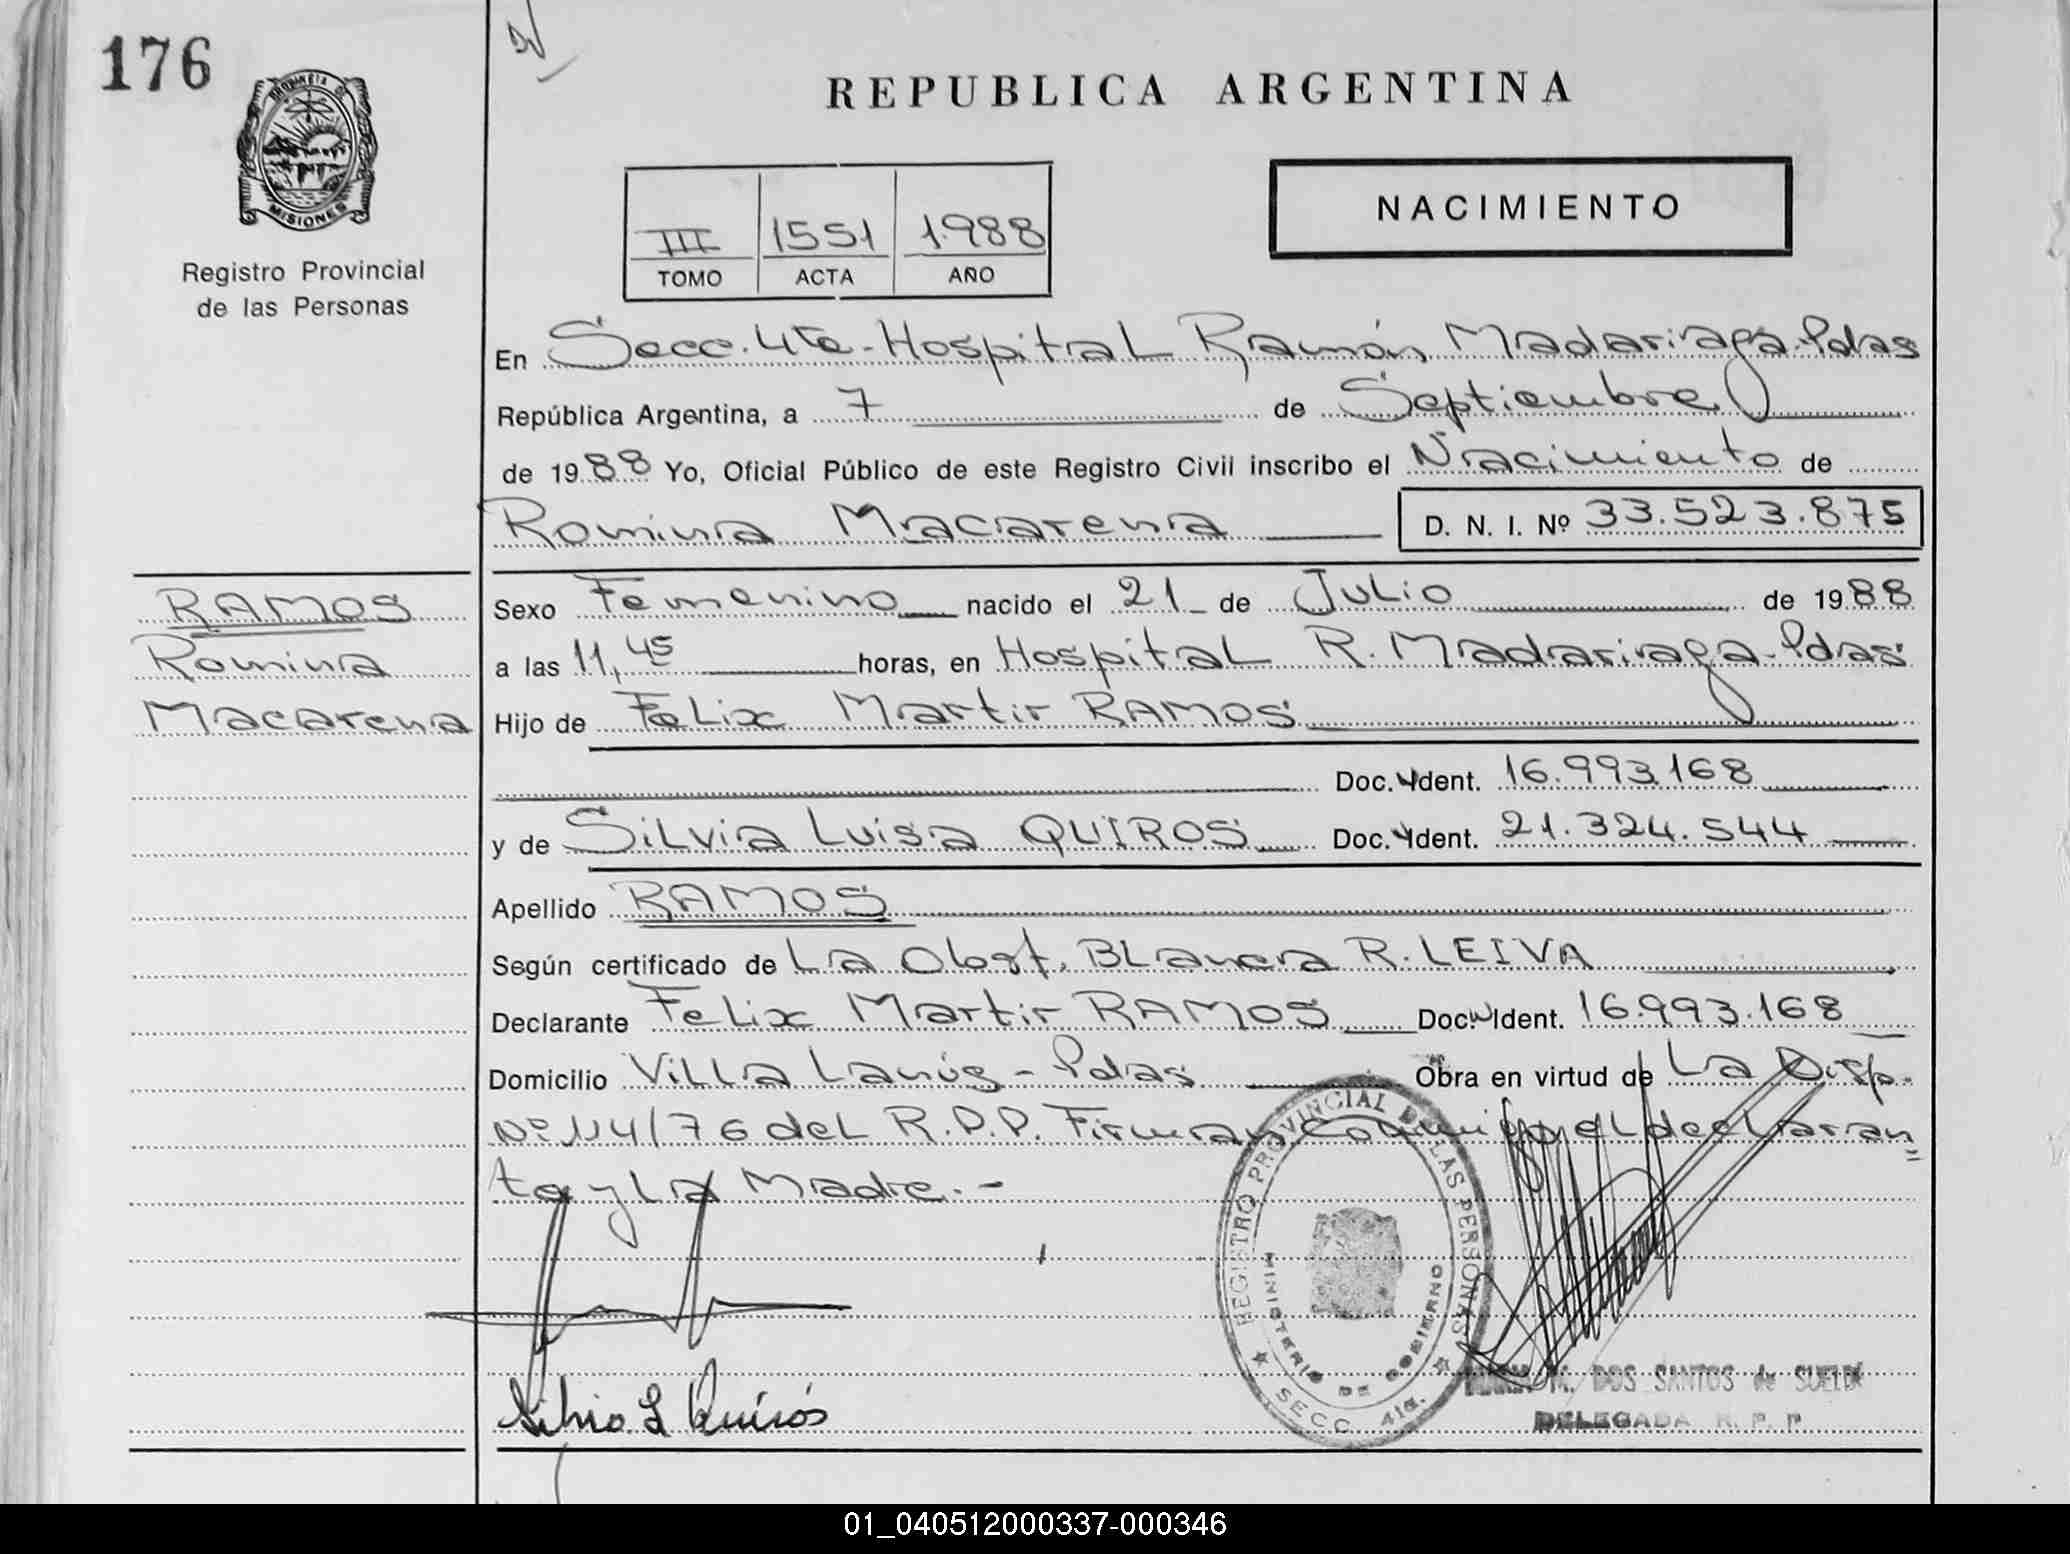 176
REPUBLICA ARGENTINA
PROVINCIA DE
MISIONES
Registro Provincial
de las Personas
III 1551 1988
TOMO ACTA AÑO
NACIMIENTO
En Secc. 4ta-Hospital Ramón Madariaga-Pdas
República Argentina, a 7 de Septiembre
de 1988 Yo, Oficial Público de este Registro Civil inscribo el Nacimiento de
Romina Macarena D. N. I. Nº 33.523.875
RAMOS
Romina
Macarena
Sexo Femenino nacido el 21 de Julio de 1988
a las 11,45 horas, en Hospital R. Madariaga-Pdas
Hijo de Felix Martir RAMOS
Doc. Ident. 16.993.168
y de Silvia Luisa QUIROS Doc. Ident. 21.324.544
Apellido RAMOS
Según certificado de La Obst. Blanca R. LEIVA
Declarante Felix Martir RAMOS Doc. Ident. 16.993.168
Domicilio Villa Lanús - Pdas Obra en virtud de La Disp.
Nº 114/76 del R.P.P. Firman Conmigo el declaran"
te y La Madre.-
REGISTRO PROVINCIAL DE LAS PERSONAS
MINISTERIO DE GOBIERNO
SECC. 4ta.
Silvia L Quirós
M. DOS SANTOS de
DELEGADA R. P. P.
01_040512000337-000346